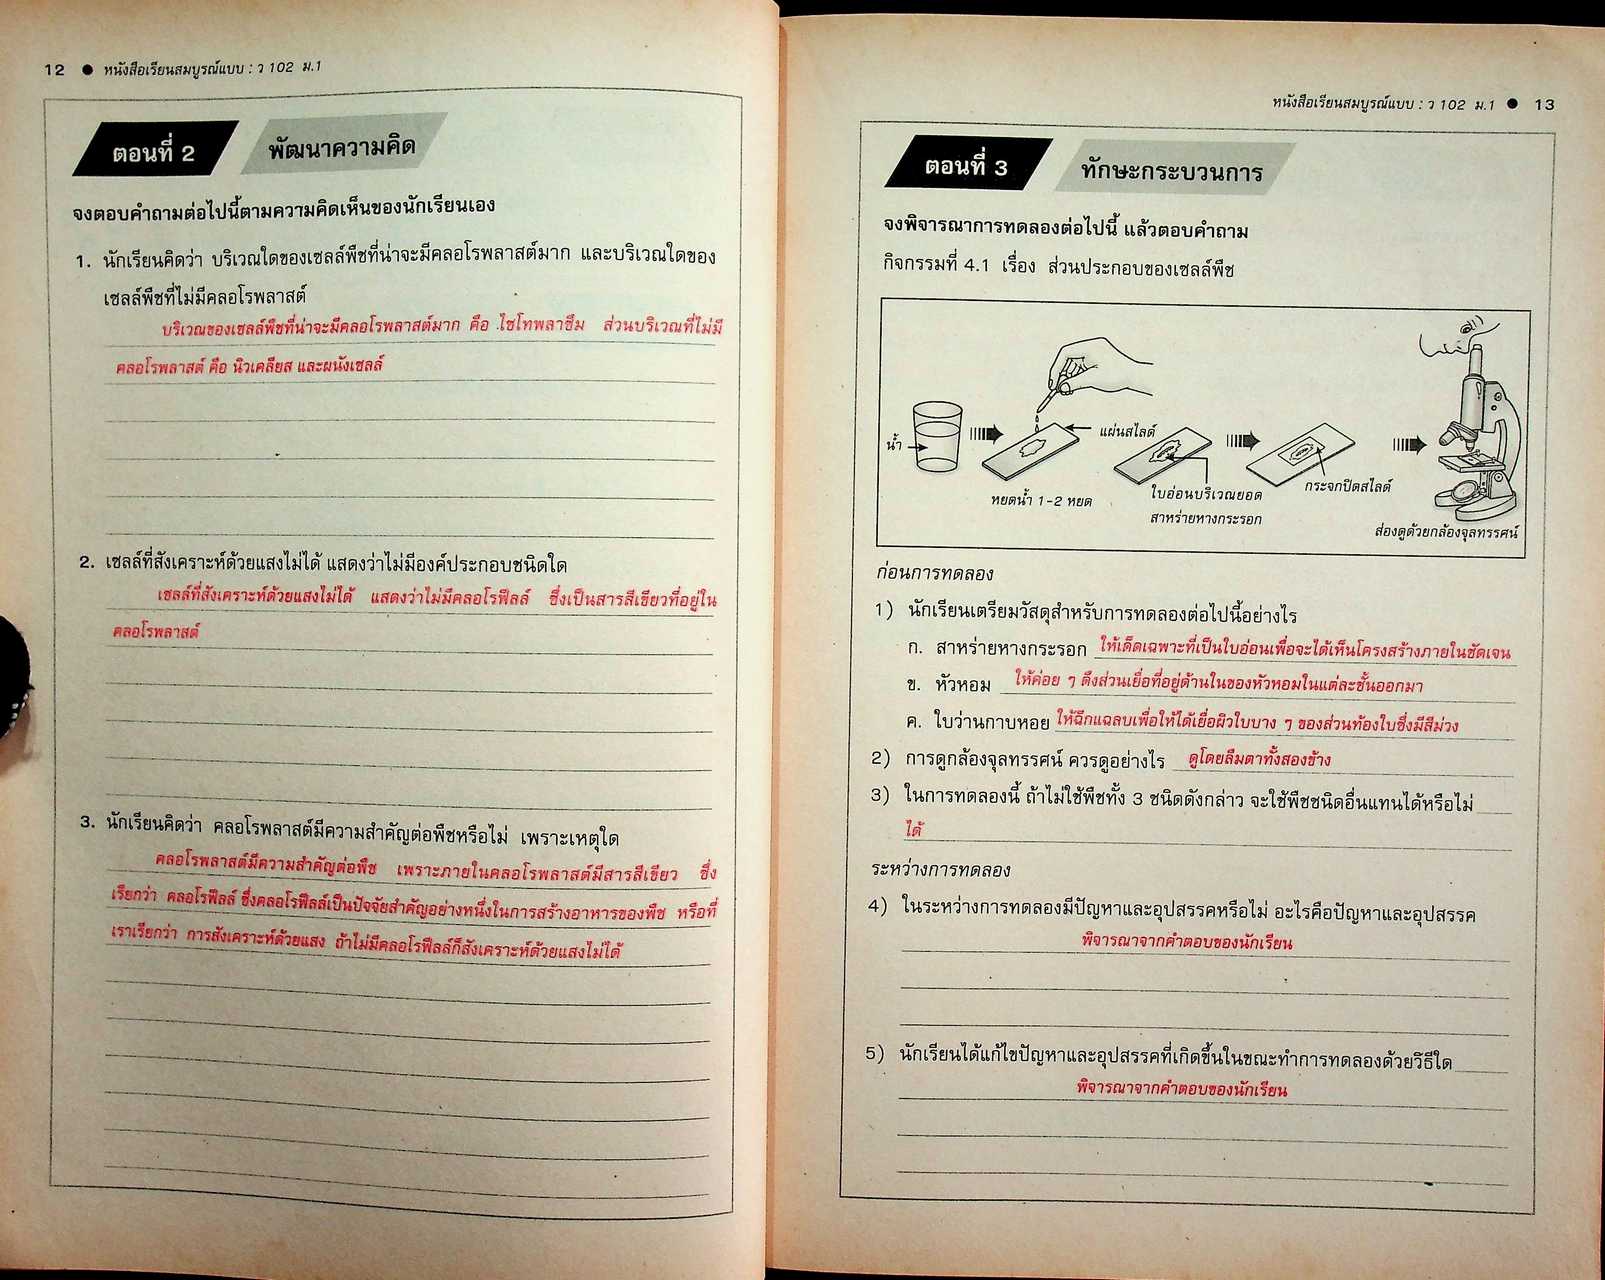 12 ● หนังสือเรียนสมบูรณ์แบบ : ว 102 ม.1
ตอนที่ 2 พัฒนาความคิด
จงตอบคำถามต่อไปนี้ตามความคิดเห็นของนักเรียนเอง
1. นักเรียนคิดว่า บริเวณใดของเซลล์พืชที่น่าจะมีคลอโรพลาสต์มาก และบริเวณใดของ
เซลล์พืชที่ไม่มีคลอโรพลาสต์
บริเวณของเซลล์พืชที่น่าจะมีคลอโรพลาสต์มาก คือ ไซโทพลาซึม ส่วนบริเวณที่ไม่มี
คลอโรพลาสต์ คือ นิวเคลียส และผนังเซลล์
2. เซลล์ที่สังเคราะห์ด้วยแสงไม่ได้ แสดงว่าไม่มีองค์ประกอบชนิดใด
เซลล์ที่สังเคราะห์ด้วยแสงไม่ได้ แสดงว่าไม่มีคลอโรฟีลล์ ซึ่งเป็นสารสีเขียวที่อยู่ใน
คลอโรพลาสต์
3. นักเรียนคิดว่า คลอโรพลาสต์มีความสำคัญต่อพืชหรือไม่ เพราะเหตุใด
คลอโรพลาสต์มีความสำคัญต่อพืช เพราะภายในคลอโรพลาสต์มีสารสีเขียว ซึ่ง
เรียกว่า คลอโรฟีลล์ ซึ่งคลอโรฟีลล์เป็นปัจจัยสำคัญอย่างหนึ่งในการสร้างอาหารของพืช หรือที่
เราเรียกว่า การสังเคราะห์ด้วยแสง ถ้าไม่มีคลอโรฟีลล์ก็สังเคราะห์ด้วยแสงไม่ได้
หนังสือเรียนสมบูรณ์แบบ : ว 102 ม.1 ● 13
ตอนที่ 3 ทักษะกระบวนการ
จงพิจารณาการทดลองต่อไปนี้ แล้วตอบคำถาม
กิจกรรมที่ 4.1 เรื่อง ส่วนประกอบของเซลล์พืช
น้ำ
แผ่นสไลด์
หยดน้ำ 1-2 หยด
ใบอ่อนบริเวณยอด
สาหร่ายหางกระรอก
กระจกปิดสไลด์
ส่องดูด้วยกล้องจุลทรรศน์
ก่อนการทดลอง
1) นักเรียนเตรียมวัสดุสำหรับการทดลองต่อไปนี้อย่างไร
ก. สาหร่ายหางกระรอก ให้เด็ดเฉพาะที่เป็นใบอ่อนเพื่อจะได้เห็นโครงสร้างภายในชัดเจน
ข. หัวหอม ให้ค่อย ๆ ดึงส่วนเยื่อที่อยู่ด้านในของหัวหอมในแต่ละชั้นออกมา
ค. ใบว่านกาบหอย ให้ฉีกแฉลบเพื่อให้ได้เยื่อผิวใบบาง ๆ ของส่วนท้องใบซึ่งมีสีม่วง
2) การดูกล้องจุลทรรศน์ ควรดูอย่างไร ดูโดยลืมตาทั้งสองข้าง
3) ในการทดลองนี้ ถ้าไม่ใช้พืชทั้ง 3 ชนิดดังกล่าว จะใช้พืชชนิดอื่นแทนได้หรือไม่
ได้
ระหว่างการทดลอง
4) ในระหว่างการทดลองมีปัญหาและอุปสรรคหรือไม่ อะไรคือปัญหาและอุปสรรค
พิจารณาจากคำตอบของนักเรียน
5) นักเรียนได้แก้ไขปัญหาและอุปสรรคที่เกิดขึ้นในขณะทำการทดลองด้วยวิธีใด
พิจารณาจากคำตอบของนักเรียน